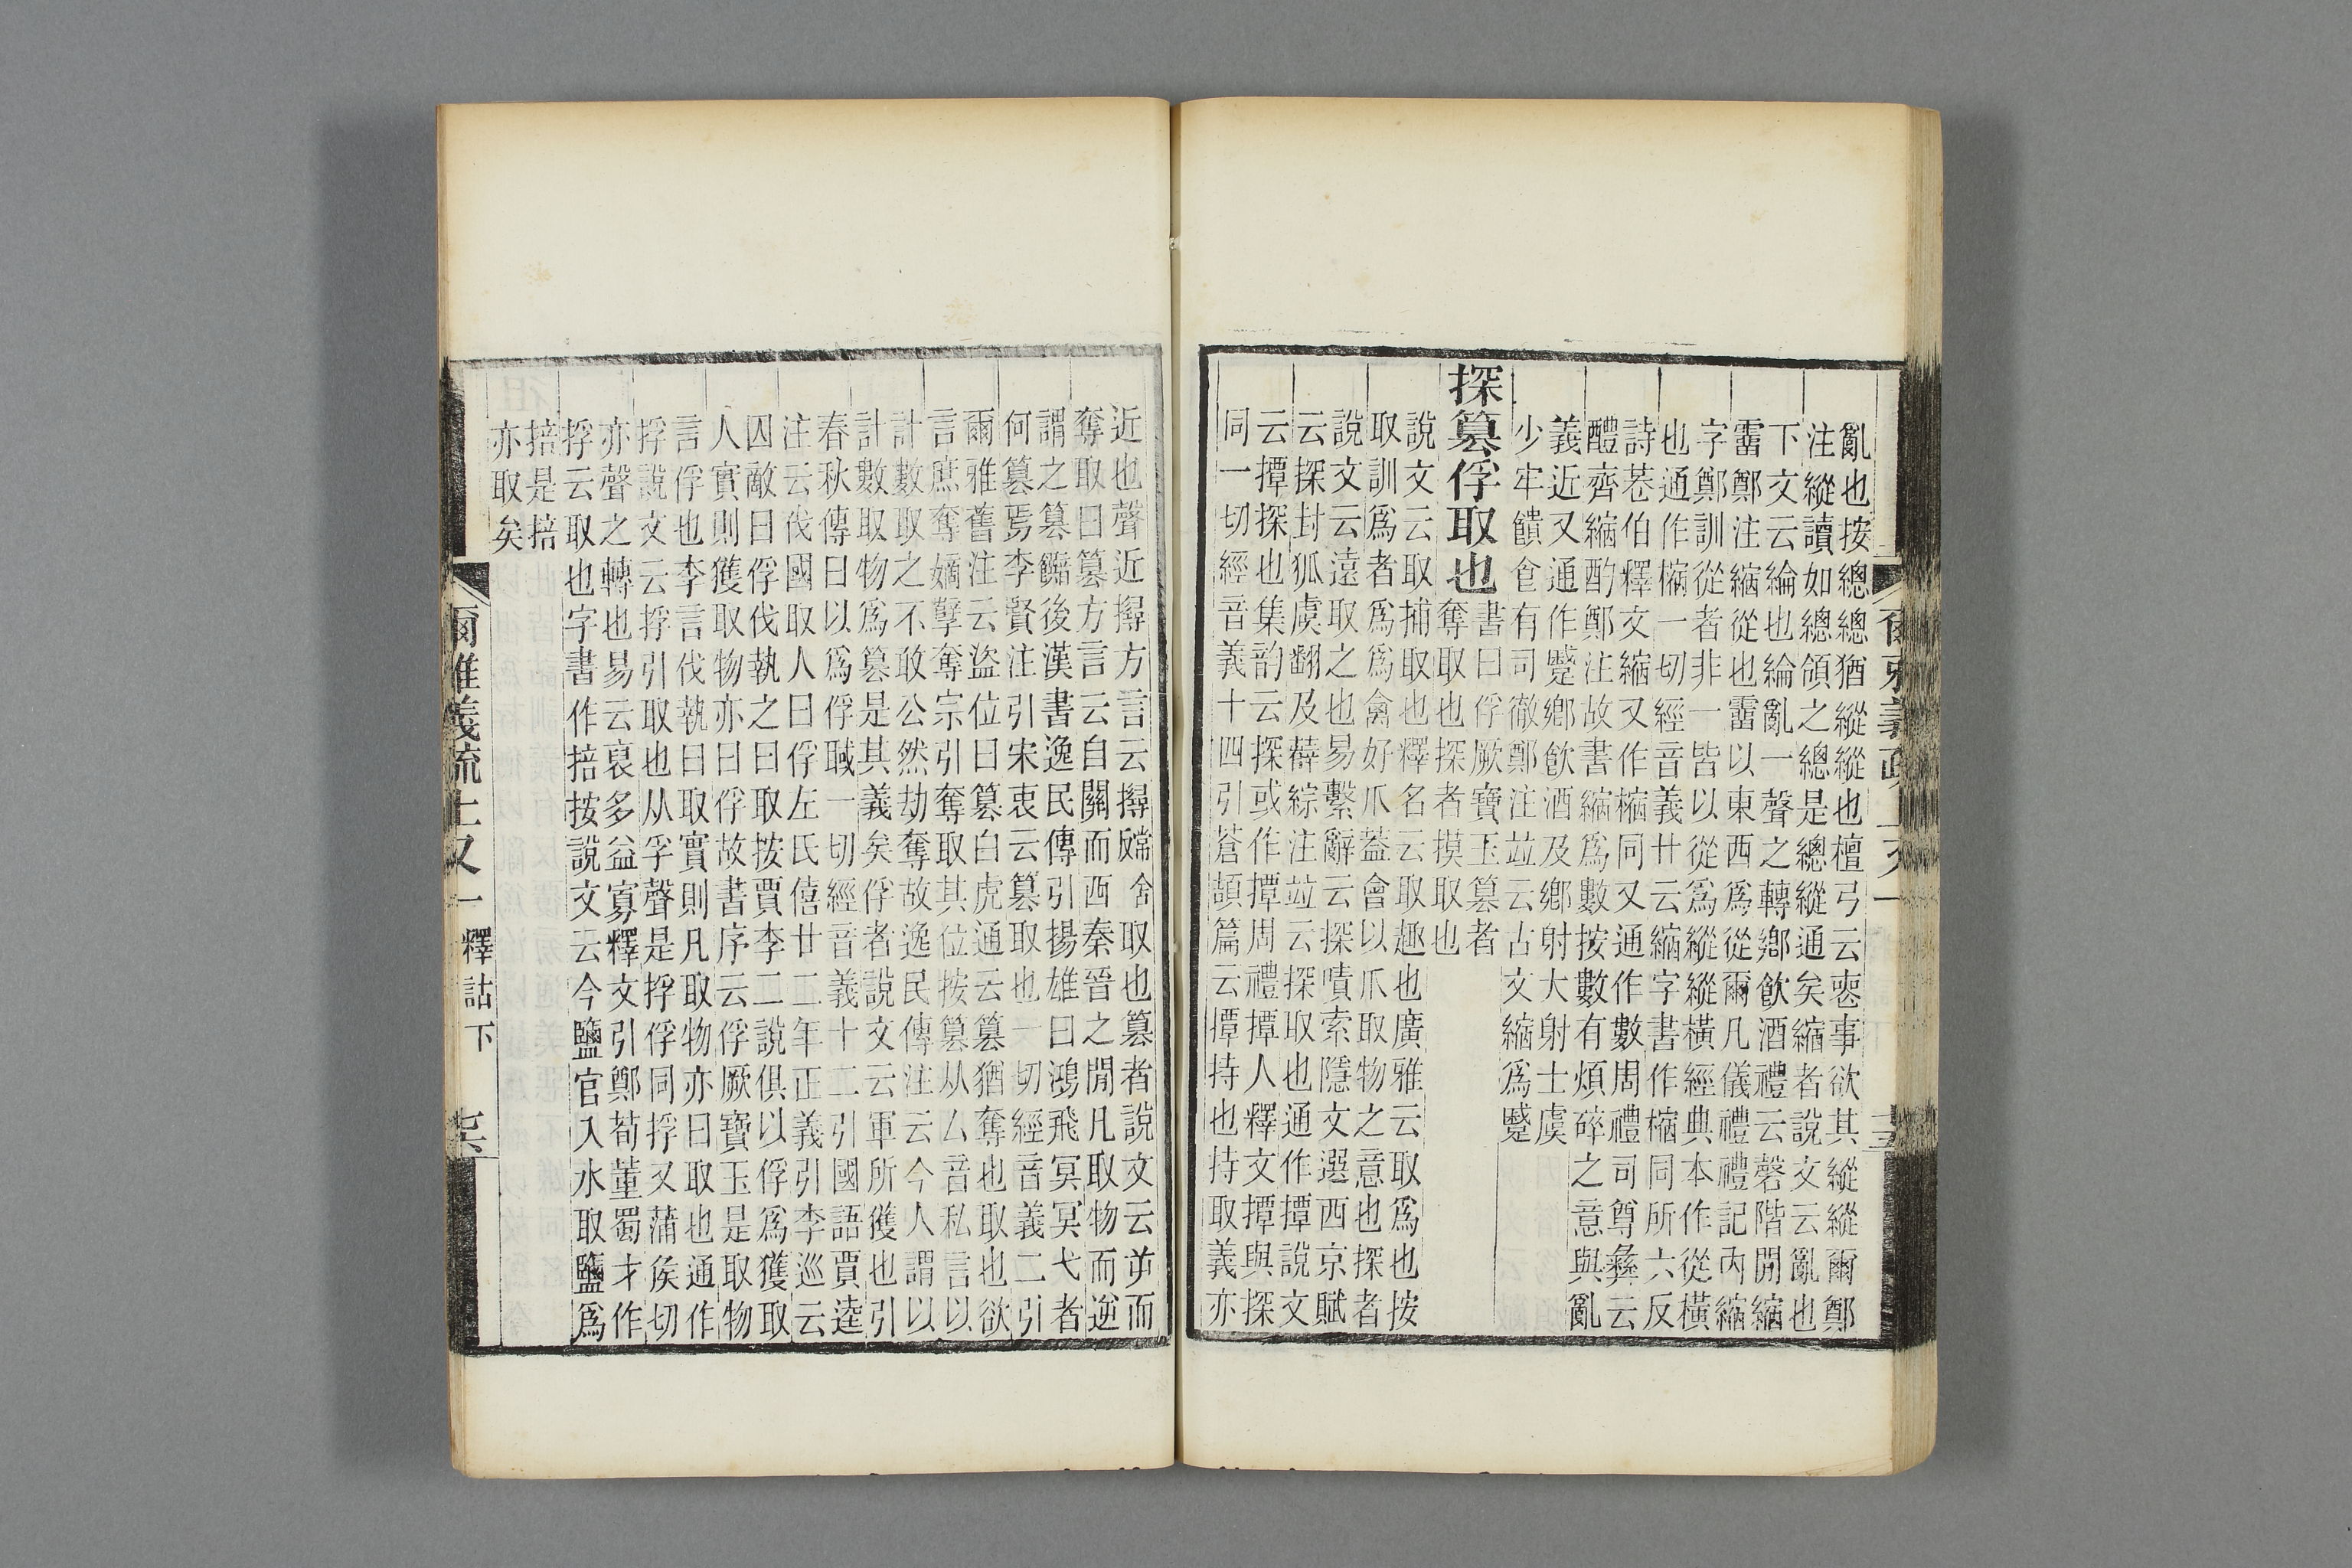 亂也按總總猶縱縱也檀弓云喪事欲其縱縱爾鄭
注縱讀如總領之總是總縱通矣縮者說文云亂也
下文云綸也綸亂一聲之轉鄉飲酒禮云磬階閒縮
霤鄭注縮從也霤以東西爲從爾凡儀禮禮記內縮
字鄭訓從者非一皆以從爲縱縱橫經典本作從橫
也通作樎一切經音義廿云縮字書作樎同所六反
詩巷伯釋文縮又作樎同又通作數周禮司尊彝云
醴齊縮酌鄭注故書縮爲數按數有煩碎之意與亂
義近又通作蹙鄉飲酒及鄉射大射士虞
少牢饋食有司徹鄭注竝云古文縮爲蹙
探篡俘取也
書曰俘厥寶玉篡者
奪取也探者摸取也
說文云取捕取也釋名云取趣也廣雅云取爲也按
取訓爲者爲爲禽好爪蓋會以爪取物之意也探者
說文云遠取之也易繫辭云探嘖索隱文選西京賦
云探封狐虞翻及薛綜注竝云探取也通作撢說文
云撢探也集韵云探或作撢周禮撢人釋文撢與探
同一切經音義十四引蒼頡篇云撢持也持取義亦
近也聲近撏方言云撏取也篡者說文云屰而
奪取曰篡方言云自關而西秦晉之閒凡取物而逆
謂之篡後漢書逸民傳引揚雄曰鴻飛冥冥弋者
何篡焉李賢注引宋衷云篡取也一切經音義二引
爾雅舊注云盜位曰篡白虎通云篡猶奪也取也欲
言庶奪嫡孽奪宗引奪取其位按篡从厶音私言以
計數取之不敢公然劫奪故逸民傳注云今人謂以
計數取物爲篡是其義矣俘者說文云軍所獲也引
春秋傳曰以爲俘聝一切經音義十二引國語賈逵
注云伐國取人曰俘左氏僖廿二年正義引李巡云
囚敵曰俘伐執之曰取按賈李二說俱以俘爲獲取
人實則獲取物亦曰俘故書序云俘厥寶玉是取物
言俘也李言伐執曰取實則凡取物亦曰取也通作
捊說文云捊引取也从孚聲是捊俘同捊又蒲侯切
亦聲之轉也易云裒多益寡釋文引鄭荀董蜀才作
捊云取也字書作掊按說文云今鹽官入水取鹽爲
掊是掊
亦取矣
爾雅義疏上又一 釋詁下